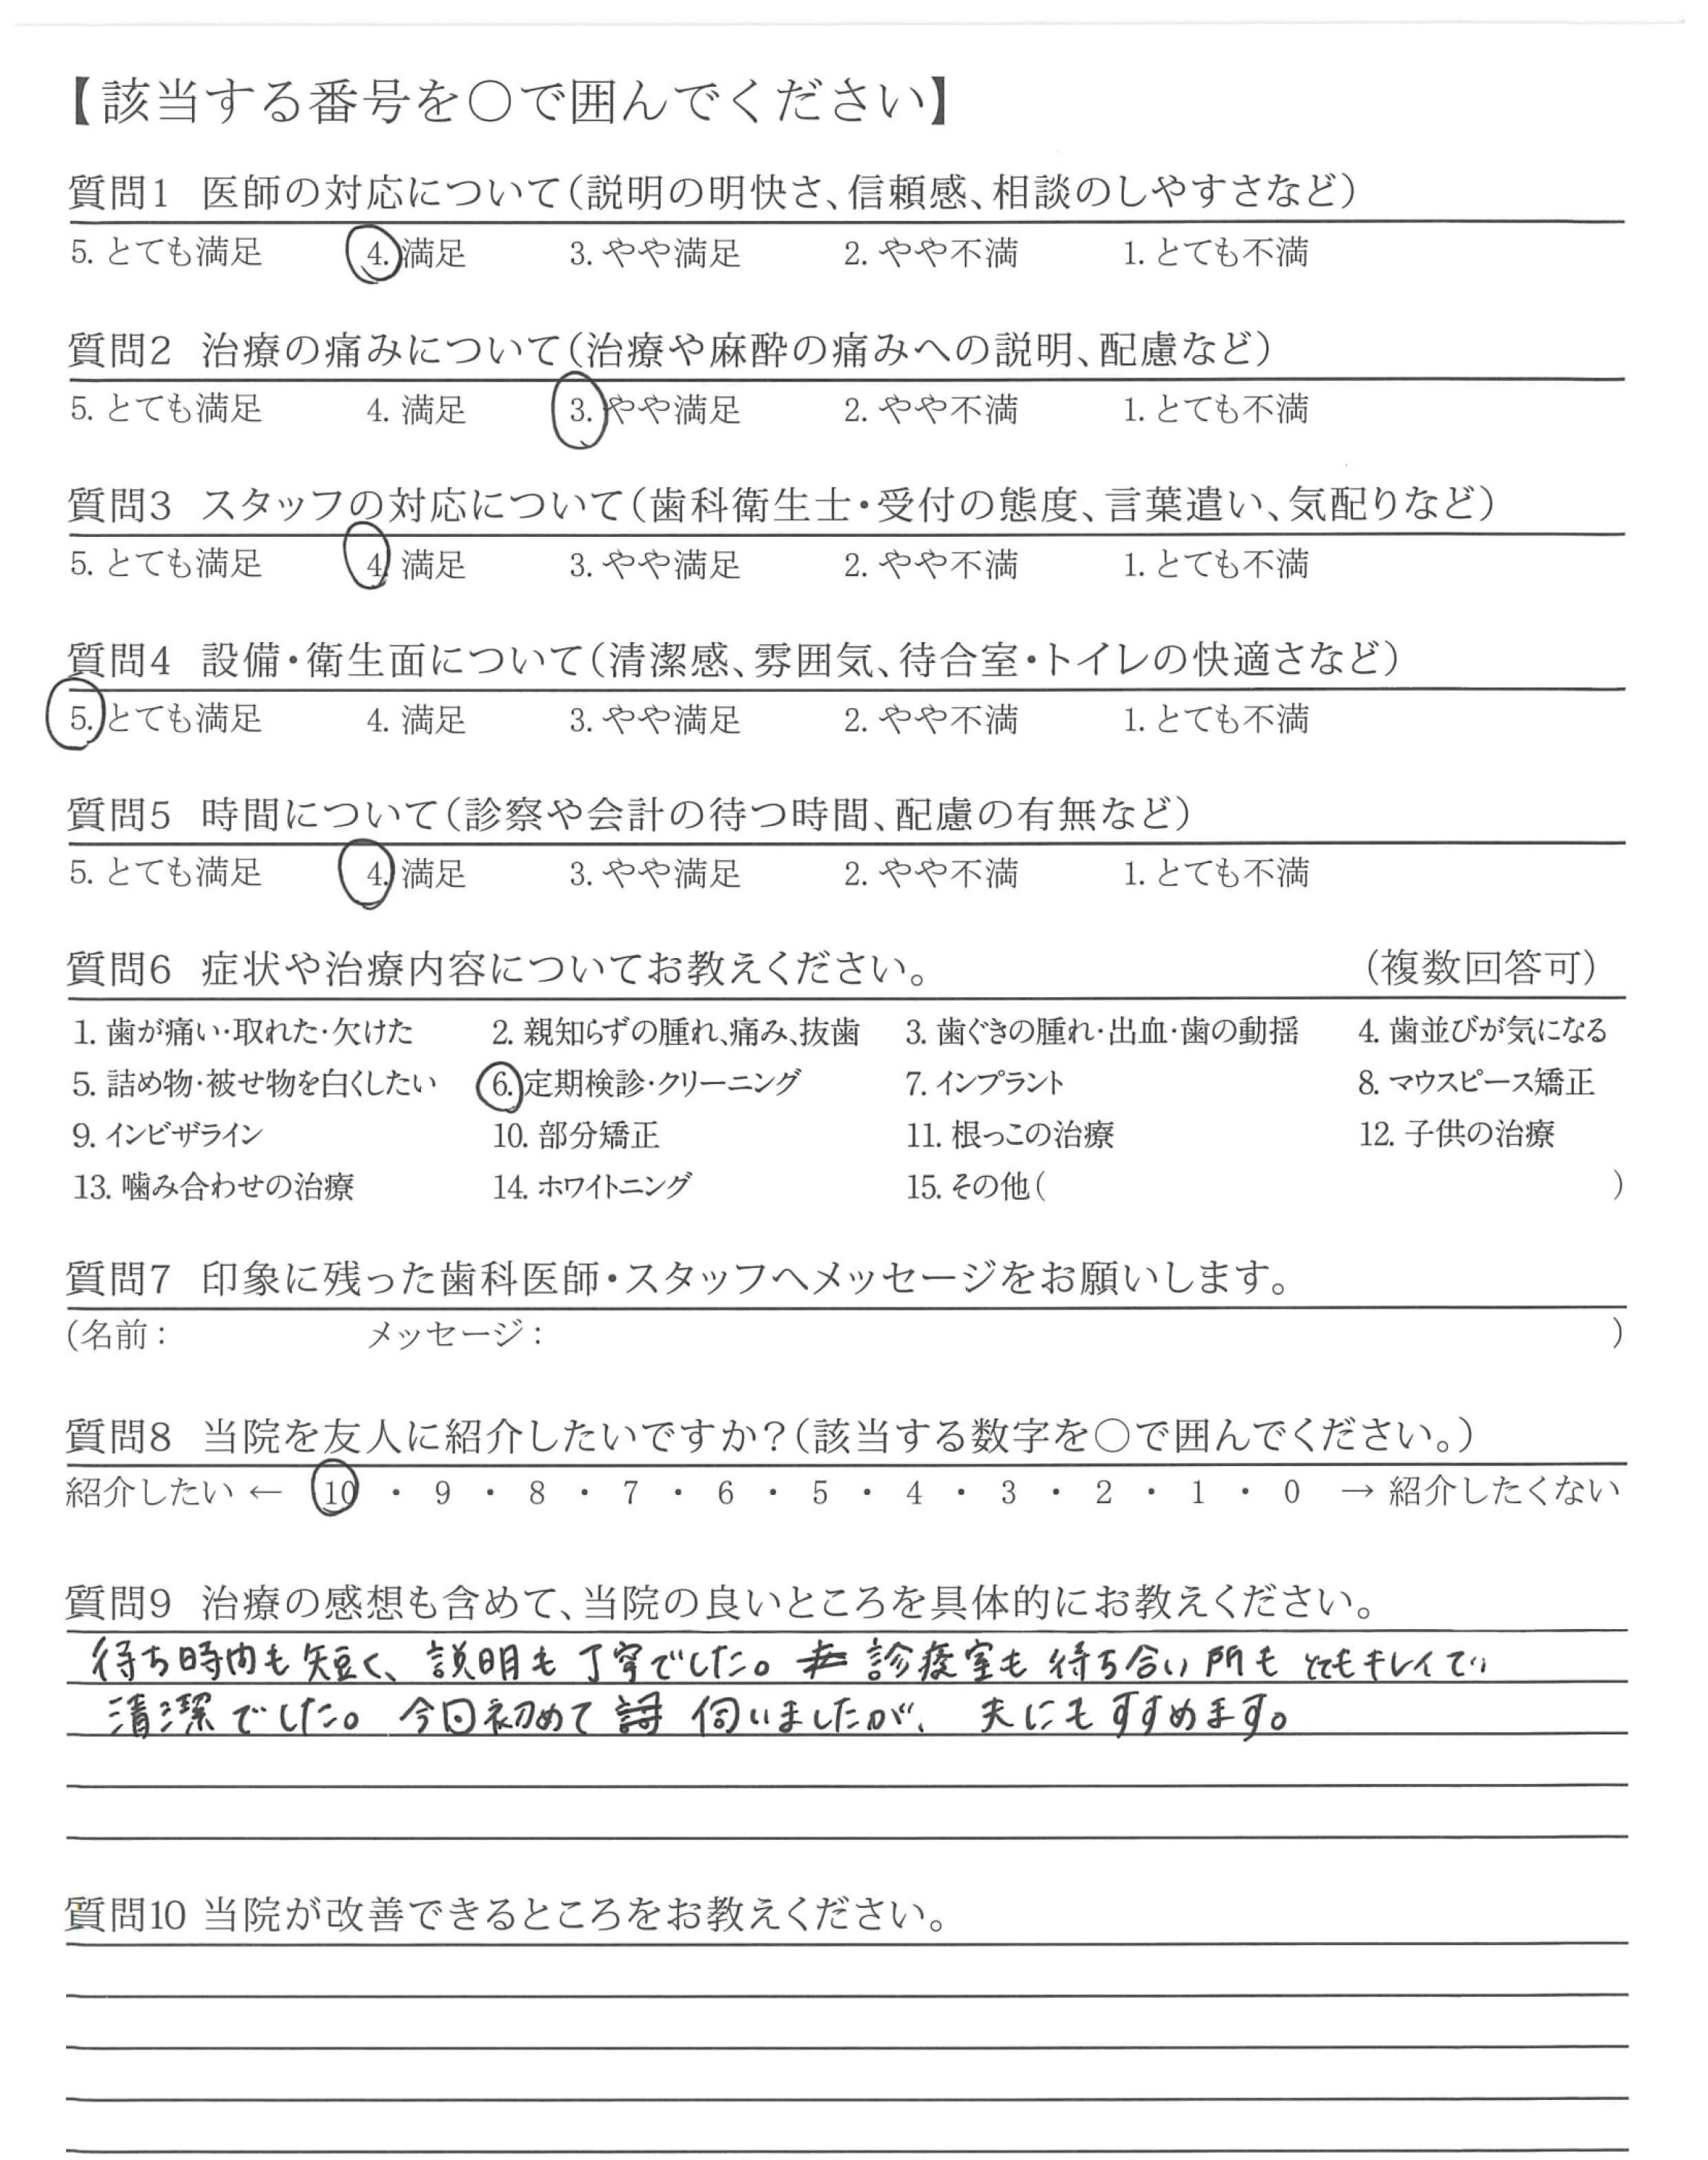 【該当する番号を○で囲んでください】
質問1 医師の対応について（説明の明快さ、信頼感、相談のしやすさなど）
5. とても満足 4. 満足 3. やや満足 2. やや不満 1. とても不満
質問2 治療の痛みについて（治療や麻酔の痛みへの説明、配慮など）
5. とても満足 4. 満足 3. やや満足 2. やや不満 1. とても不満
質問3 スタッフの対応について（歯科衛生士・受付の態度、言葉遣い、気配りなど）
5. とても満足 4. 満足 3. やや満足 2. やや不満 1. とても不満
質問4 設備・衛生面について（清潔感、雰囲気、待合室・トイレの快適さなど）
5. とても満足 4. 満足 3. やや満足 2. やや不満 1. とても不満
質問5 時間について（診察や会計の待つ時間、配慮の有無など）
5. とても満足 4. 満足 3. やや満足 2. やや不満 1. とても不満
質問6 症状や治療内容についてお教えください。 （複数回答可）
1. 歯が痛い・取れた・欠けた 2. 親知らずの腫れ、痛み、抜歯 3. 歯ぐきの腫れ・出血・歯の動揺 4. 歯並びが気になる
5. 詰め物・被せ物を白くしたい 6. 定期検診・クリーニング 7. インプラント 8. マウスピース矯正
9. インビザライン 10. 部分矯正 11. 根っこの治療 12. 子供の治療
13. 噛み合わせの治療 14. ホワイトニング 15. その他（ ）
質問7 印象に残った歯科医師・スタッフへメッセージをお願いします。
（名前： メッセージ： ）
質問8 当院を友人に紹介したいですか？（該当する数字を○で囲んでください。）
紹介したい ← 10 ・ 9 ・ 8 ・ 7 ・ 6 ・ 5 ・ 4 ・ 3 ・ 2 ・ 1 ・ 0 → 紹介したくない
質問9 治療の感想も含めて、当院の良いところを具体的にお教えください。
待ち時間も短く、説明も丁寧でした。診療室も待ち合い所もとてもキレイで
清潔でした。今回初めて伺いましたが、夫にもすすめます。
質問10 当院が改善できるところをお教えください。